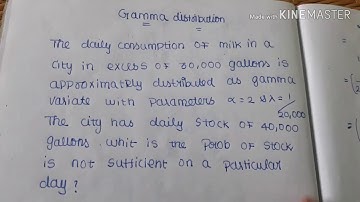 Gamma distribution
Made with KINEMASTER
The daily consumption of milk in a
city in excess of 30,000 gallons is
approximately distributed as gamma
variate with parameters α=2 & λ=1/20,000
The city has daily stock of 40,000
gallons. What is the prob of stock
is not sufficient on a particular
day?